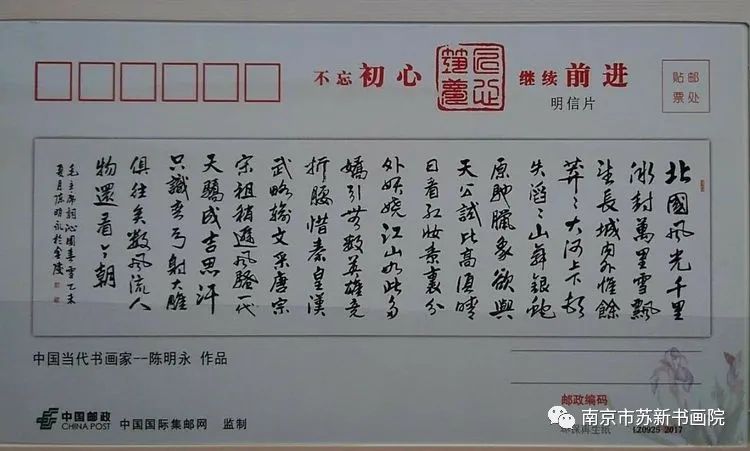 不忘初心 继续前进
明信片
贴邮
票处
北國風光千里
冰封萬里雪飄
望長城內外惟餘
莽〻大河上下頓
失滔〻山舞銀蛇
原馳臘象欲與
天公試比高須晴
日看紅妝素裹分
外妖嬈江山如此多
嬌引無數英雄竞
折腰惜秦皇漢
武略輸文采唐宗
宋祖稍遜風騷一代
天驕成吉思汗
只識彎弓射大雕
俱往矣數風流人
物還看今朝
毛主席詞沁園春雪乙未
夏月陈明永於金陵
中国当代书画家--陈明永 作品
中国邮政
CHINA POST
中国国际集邮网 监制
邮政编码
南京市苏新书画院